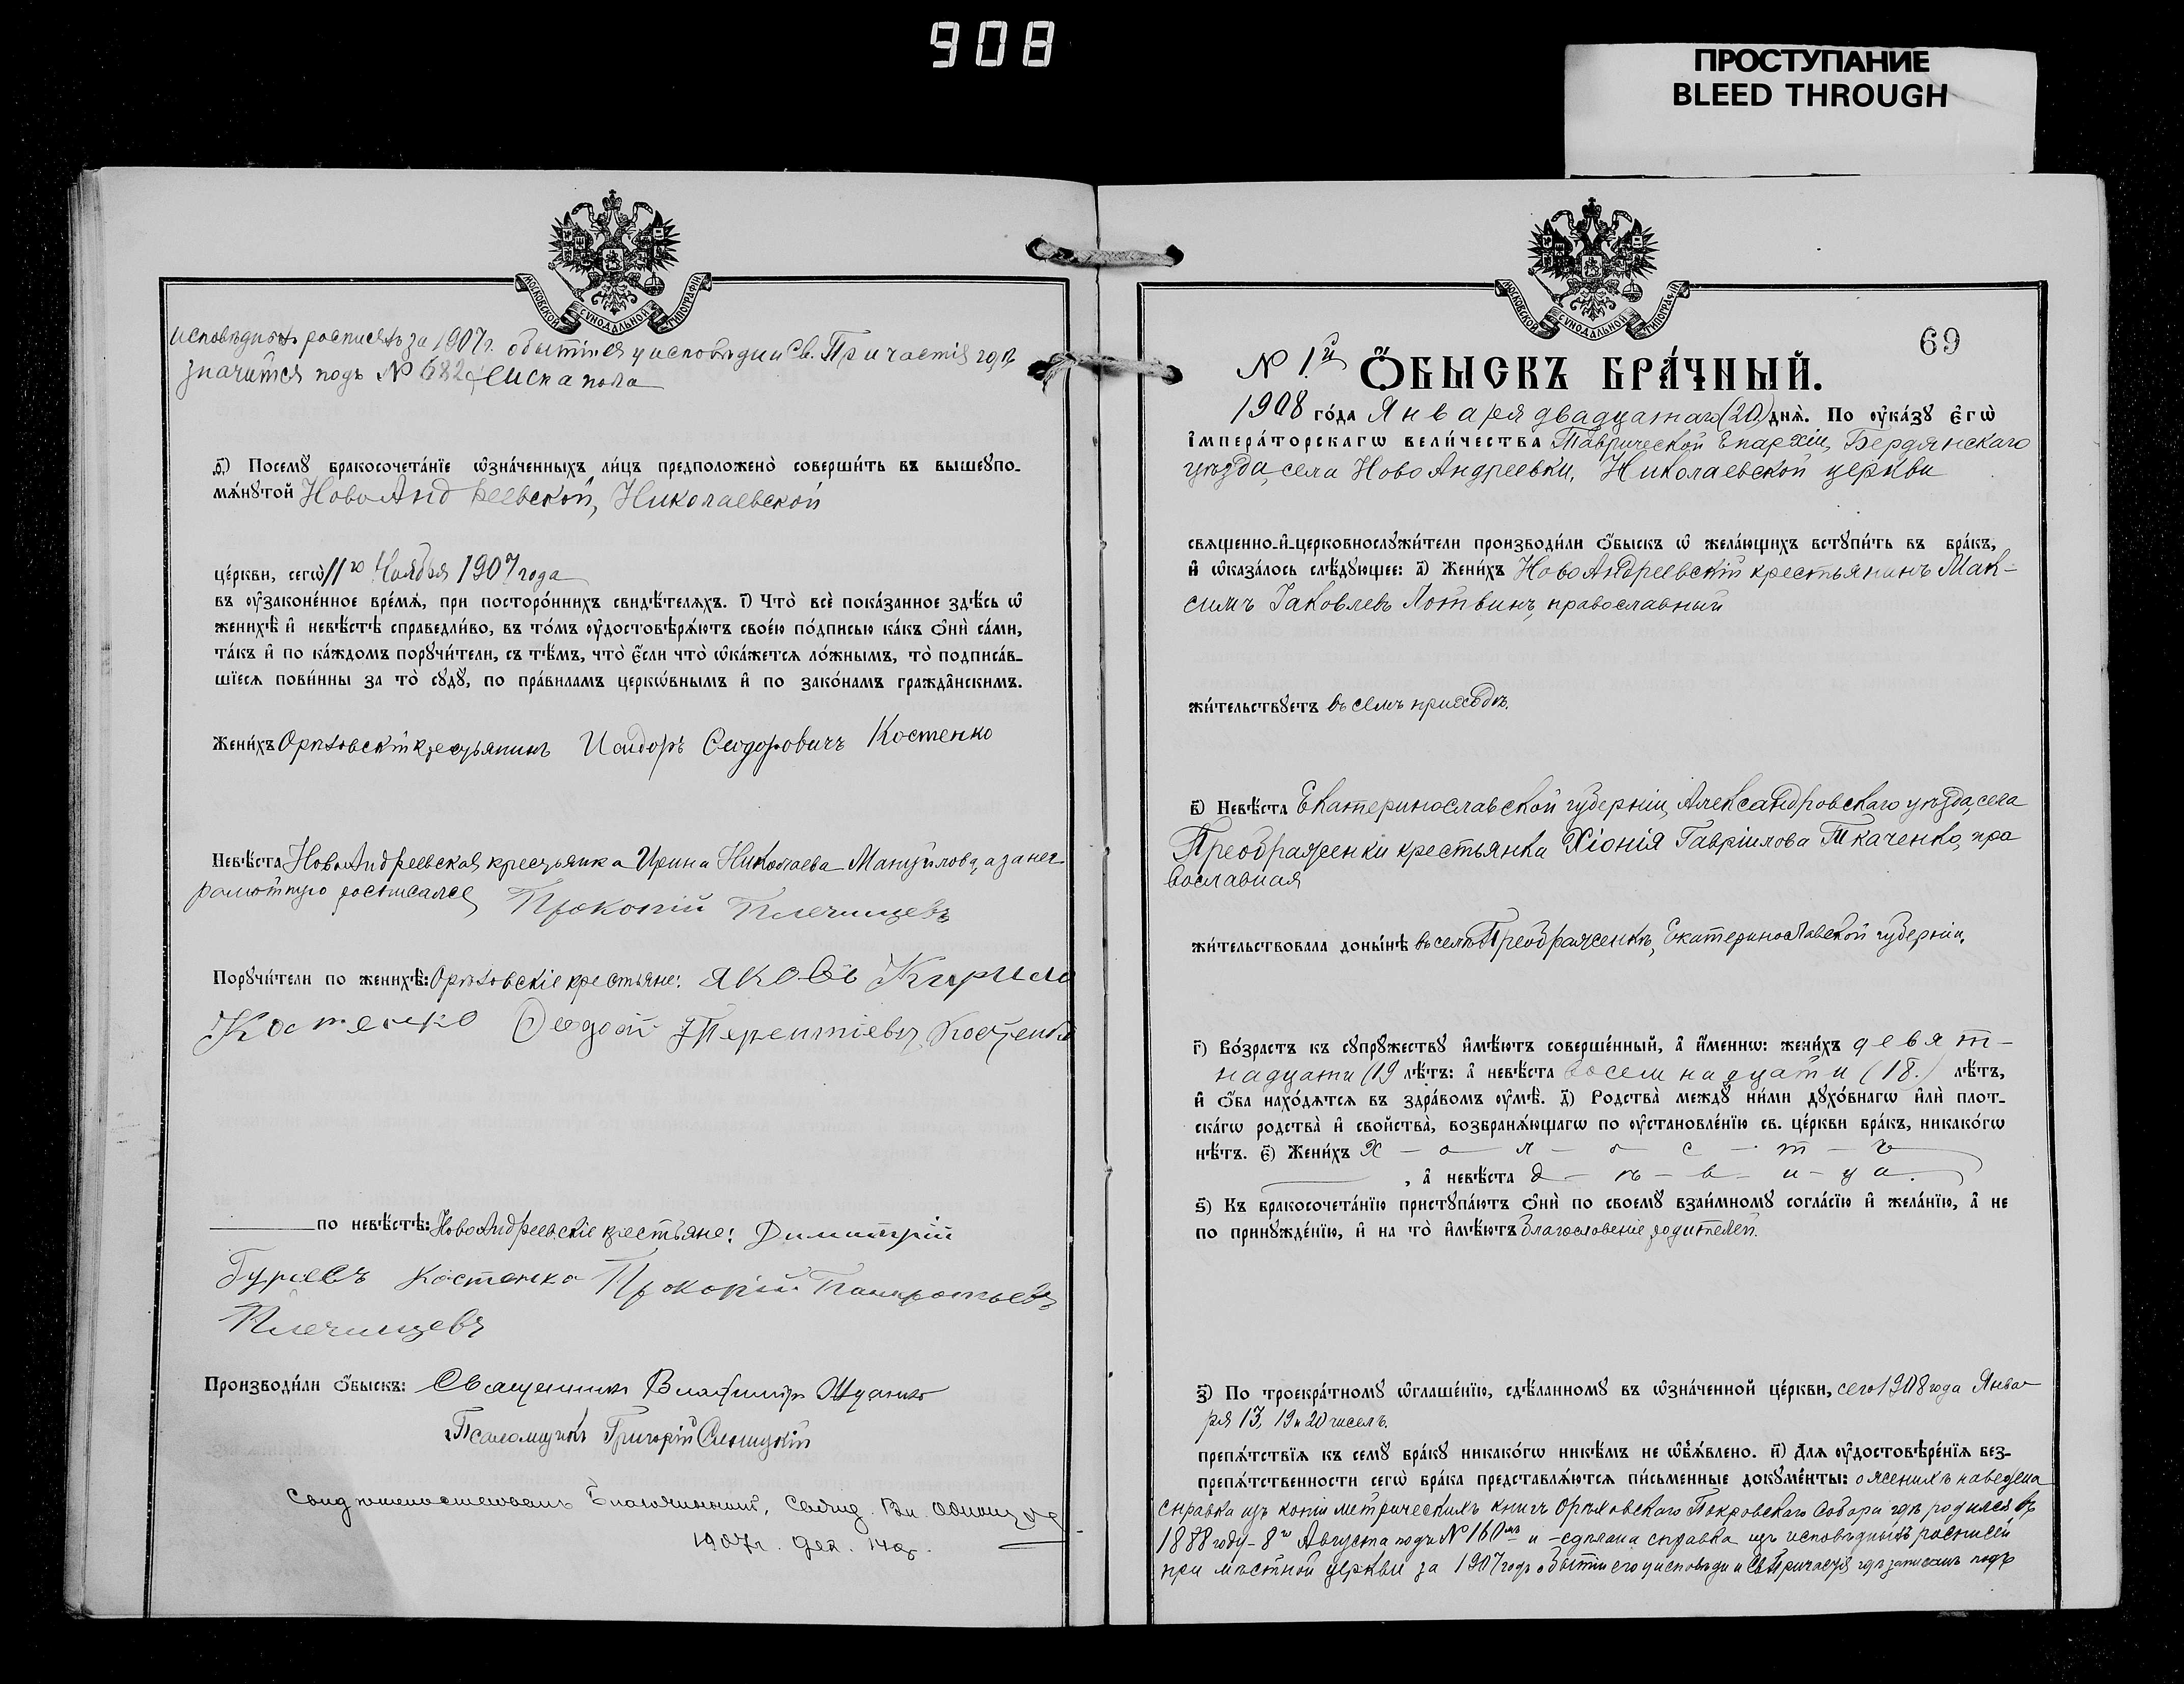 908
ПРОСТУПАНИЕ
BLEED THROUGH
МОСКОВСКОЙ СѴНОДАЛЬНОЙ ТИПОГРАФІИ
исповѣдныхъ росписяхъ за 1907 г. о бытіи ея у исповѣди и Св. Причастія гдѣ
значится подъ № 682 женска пола
д҃) Посемꙋ бракосочета́нїе ѡ҆зна́ченныхъ ли́цъ предположено̀ соверши́ть въ вышеꙋпо-
мѧ́нꙋтой Ново Андреевской, Николаевской
це́ркви, сегѡ̀ 11го Ноября 1907 года
въ оу҆законе́нное вре́мѧ, при посторо́ннихъ свидѣ́телѧхъ. і҃) Что̀ всѐ пока́занное здѣ́сь ѡ҆
женихѣ̀ и҆ невѣ́стѣ справедли́во, въ то́мъ оу҆достовѣрѧ́ютъ свое́ю по́дписью ка́къ ѻ҆нѝ са́ми,
та́къ и҆ по ка́ждомъ порꙋчи́тели, съ тѣ́мъ, что̀ є҆́сли что̀ ѡ҆ка́жетсѧ ло́жнымъ, то̀ подписа́в-
шїесѧ пови́нны за то̀ сꙋдꙋ̀, по пра́виламъ церко́внымъ и҆ по зако́намъ гражда́нскимъ.
Жени́хъ Орѣховскій крестьянинъ Исидоръ Ѳеодоровичъ Костенко
Невѣ́ста Ново Андреевская крестьянка Ирина Николаева Мануилова, а за негра-
мотную росписался Прокопій Плечищевъ
Порꙋчи́тели по женихѣ̀: Орѣховскіе крестьяне: Яковъ Кирило
Костенко Ѳеодосій Терентіевъ Костенко
по невѣ́стѣ: Ново Андреевскіе крестьяне: Димитрій
Гурьевъ Костенко Прокопій Панкратьевъ
Плечищевъ
Производи́ли ѻ҆́быскъ: Священникъ Владиміръ
Псаломщикъ Григорій
Благочинный, Свящ. Вл.
1907 г. Дек. 14 д.
69
МОСКОВСКОЙ СѴНОДАЛЬНОЙ ТИПОГРАФІИ
№ 1й Ѻ҆́БЫСКЪ БРА́ЧНЫЙ.
1908 го́да Января двадцатаго (20) днѧ̀. По оу҆ка́зꙋ є҆гѡ̀
і҆мпера́торскагѡ вели́чества Таврической Епархіи, Бердянскаго
уѣзда, села Ново Андреевки, Николаевской церкви
свѧщенно-и҆-церковнослꙋжи́тели производи́ли ѻ҆́быскъ ѡ҆ жела́ющихъ встꙋпи́ть въ бра́къ,
и҆ ѡ҆каза́лось слѣ́дꙋющее: а҃) Жени́хъ Ново Андреевскій крестьянинъ Мак-
симъ Іаковлевъ Лотвинъ, православный
жи́тельствꙋетъ въ семъ приходѣ.
в҃) Невѣ́ста Екатеринославской губерніи, Александровскаго уѣзда, села
Преображенки крестьянка Хіонія Гавріилова Ткаченко, пра
вославная
жи́тельствовала доны́нѣ въ селѣ Преображенкѣ, Екатеринославской губерніи.
г҃) Во́зрастъ къ сꙋпрꙋ́жествꙋ и҆мѣ́ютъ соверше́нный, а҆ и҆́менно: жени́хъ девят-
надцати (19 лѣ́тъ: а҆ невѣ́ста восемнадцати (18.) лѣ́тъ,
и҆ ѻ҆́ба нахо́дѧтсѧ въ здра́вомъ оу҆мѣ̀. д҃) Родства̀ междꙋ̀ ни́ми дꙋхо́внагѡ и҆лѝ плот-
ска́гѡ родства̀ и҆ свойства̀, возбранѧ́ющагѡ по оу҆становле́нїю св. це́ркви бра́къ, никако́гѡ
нѣ́тъ. є҃) Жени́хъ Х - о - л - о - с - т - ъ
, а҆ невѣ́ста д - ѣ - в - и - ц а.
ѕ҃) Къ бракосочета́нїю пристꙋпа́ютъ ѻ҆нѝ по своемꙋ̀ взаи́мномꙋ согла́сїю и҆ жела́нїю, а҆ не
по принꙋжде́нїю, и҆ на то̀ и҆мѣ́ютъ благословеніе родителей.
з҃) По троекра́тномꙋ ѡ҆глаше́нїю, сдѣ́ланномꙋ въ ѡ҆зна́ченной це́ркви, сего 1908 года Янва-
ря 13, 19 и 20 чиселъ.
препѧ́тствїѧ къ семꙋ̀ бра́кꙋ никако́гѡ никѣ́мъ не ѡ҆б̾ѧ́влено. и҃) Длѧ оу҆достовѣре́нїѧ без-
препѧ́тственности сегѡ̀ бра́ка представлѧ́ютсѧ пи́сьменные докꙋме́нты: о женихѣ наведена
справка изъ копіи метрическихъ книгъ Орѣховскаго Покровскаго Собора гдѣ родился въ
1888 году - 8го Августа подъ № 160мъ и - сдѣлана справка изъ исповѣдныхъ росписей
при мѣстной церкви за 1907 годъ о бытіи его у исповѣди и Св. Причастія гдѣ записанъ подъ